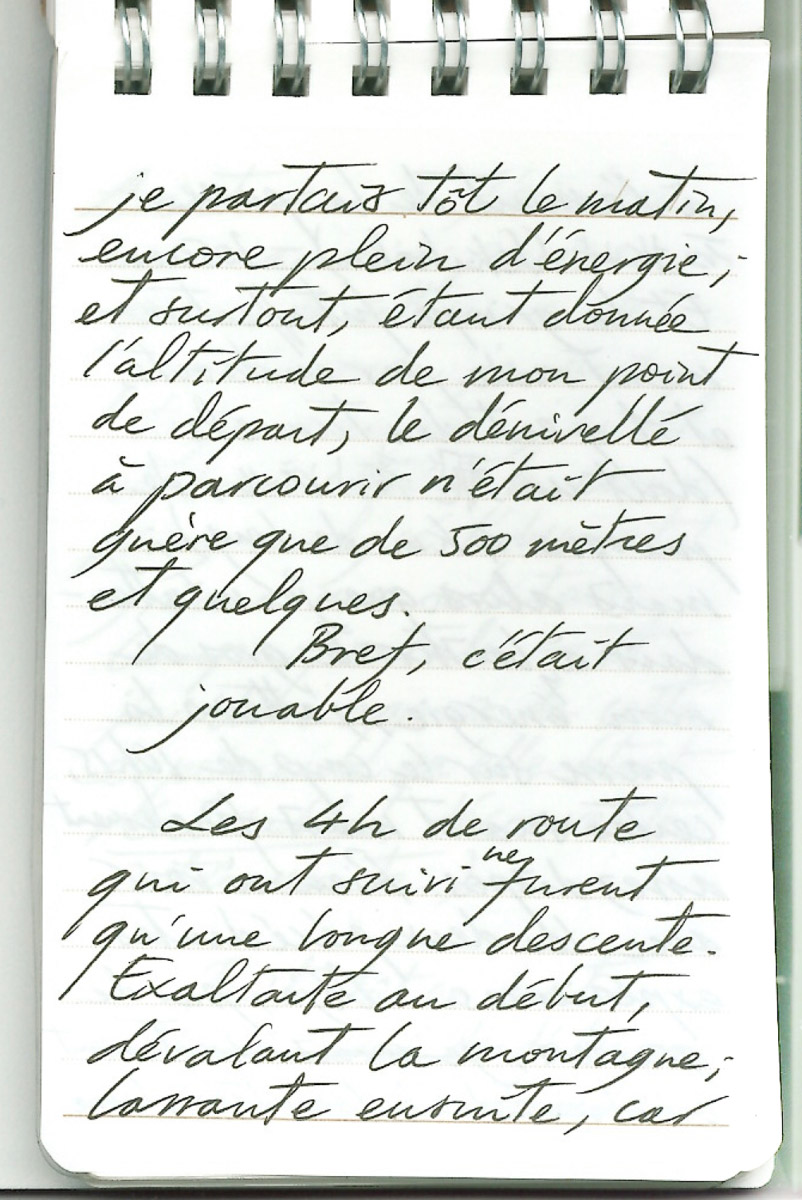 je partais tôt le matin,
encore plein d'énergie ;
et surtout, étant donnée
l'altitude de mon point
de départ, le dénivellé
à parcourir n'était
guère que de 500 mètres
et quelques.
Bref, c'était
jouable.
Les 4h de route
qui ont suivi ne furent
qu'une longue descente.
Exaltante au début,
dévalant la montagne ;
lassante ensuite, car